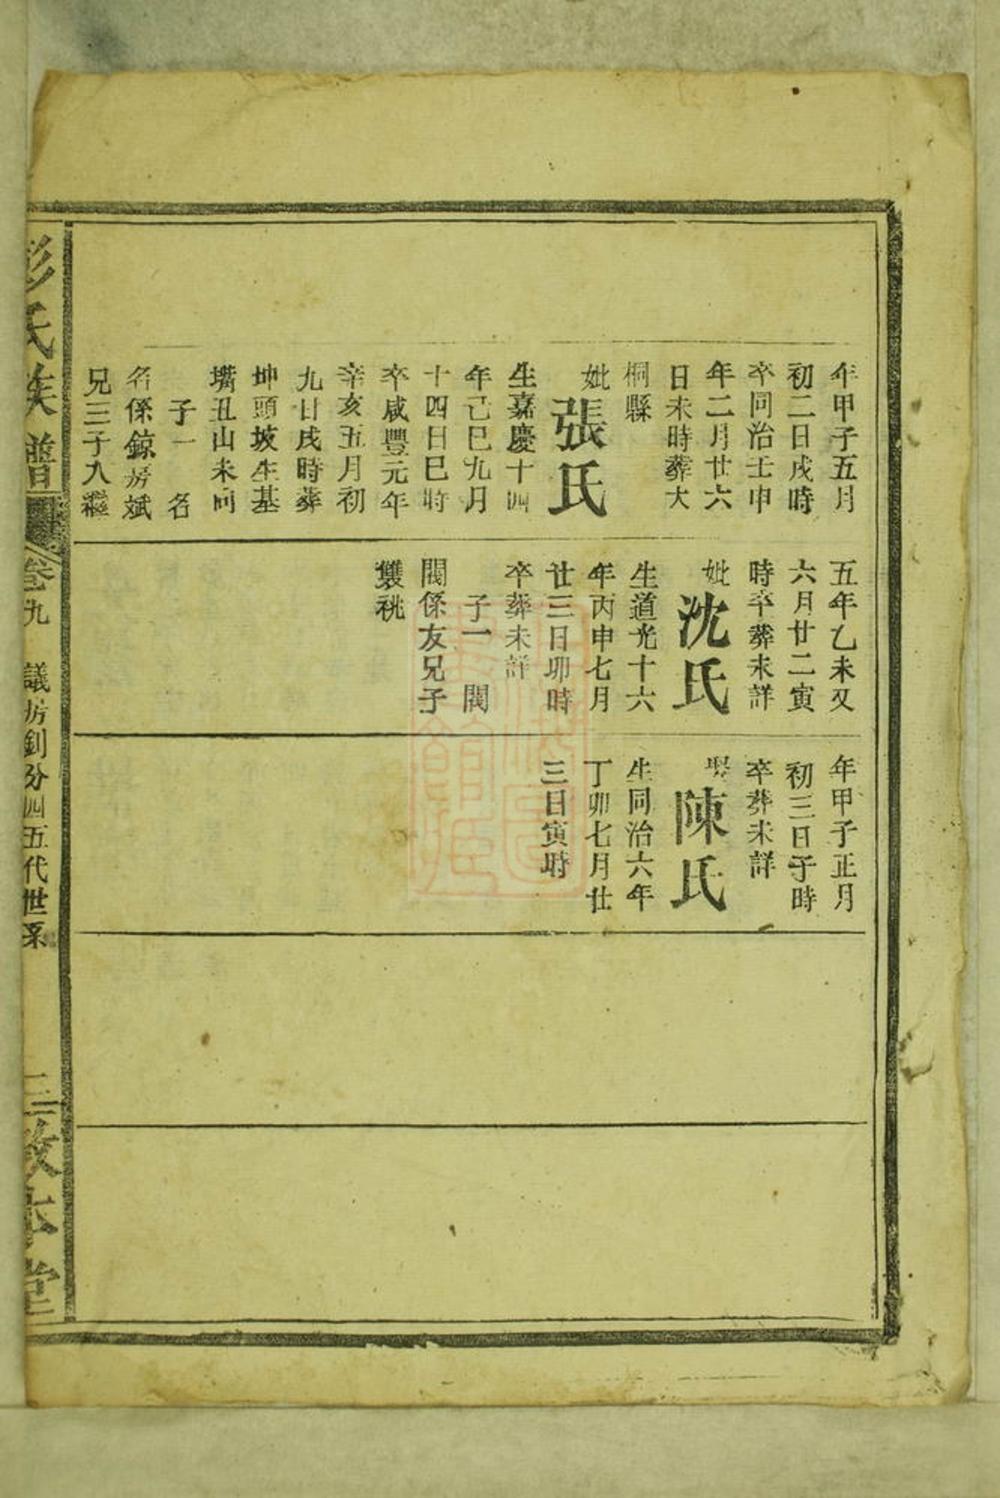 年甲子五月
初二日戌時
卒同治壬申
年二月廿六
日未時葬大
桐縣
妣張氏
生嘉慶十四
年己巳九月
十四日巳時
卒咸豐元年
辛亥五月初
九日戌時葬
坤頭坡生基
嘴丑山未向
子一 名
名係鯨房斌
兄三子入繼
五年乙未又
六月廿二寅
時卒葬未詳
妣沈氏
生道光十六
年丙申七月
廿三日卯時
卒葬未詳
子一 閥
閥係友兄子
雙祧
年甲子正月
初三日子時
卒葬未詳
娶陳氏
生同治六年
丁卯七月廿
三日寅時
彭氏族譜
卷九
議房釗分四五代世系
三
敦本堂